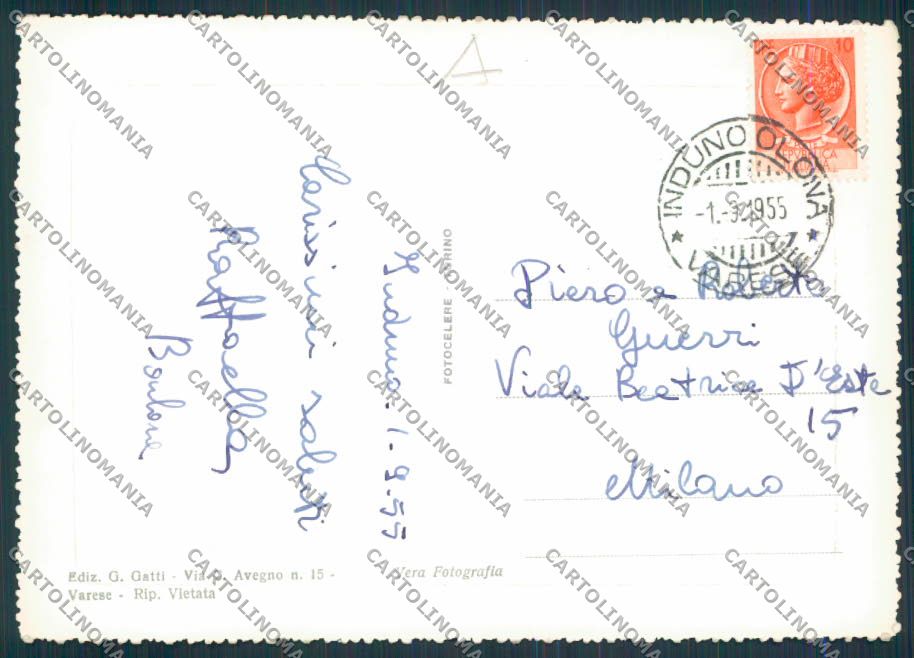 CARTOLINOMANIA
10
INDUNO OLONA
-1.-9.1955
VARESE
Induno. 1-9-55
Carissimi saluti
Raffaella
FOTOCELERE - TORINO
Piero e Roberto
Guerri
Viale Beatrice D'Este
15
Milano
Ediz. G. Gatti - Via G. Avegno n. 15 -
Varese - Rip. Vietata
Vera Fotografia